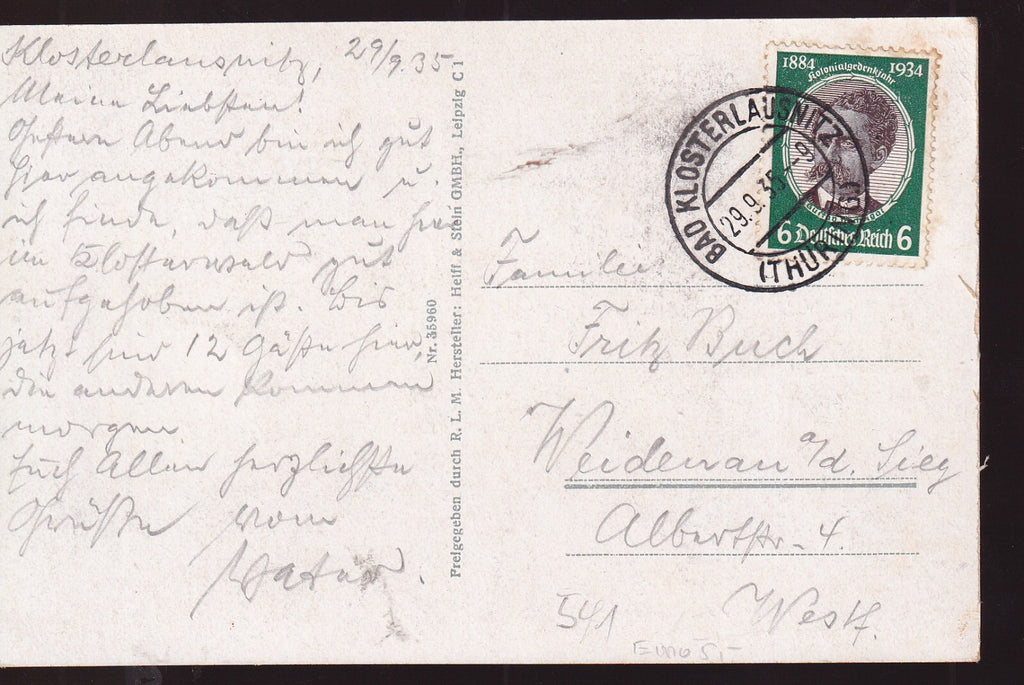 Klosterlausnitz, 29/9.35
Meine Liebsten!
Gestern Abend bin ich gut
hier angekommen u.
ich finde, daß man hier
im Klosterwald gut
aufgehoben ist. Bis
jetzt sind 12 Gäste hier,
die anderen kommen
morgen.
Euch Allen herzlichste
Grüße vom
Vater.
Nr. 35960
Freigegeben durch R. L. M. Hersteller: Heiff & Stein GMBH., Leipzig C1
1884 1934
Kolonialgedenkjahr
6 Deutsches Reich 6
BAD KLOSTERLAUSNITZ
29.9.35.-9
Familie
Fritz Buch
Weidenau a/d. Sieg
Albertstr. 4.
541 Westf.
Euro 5,-